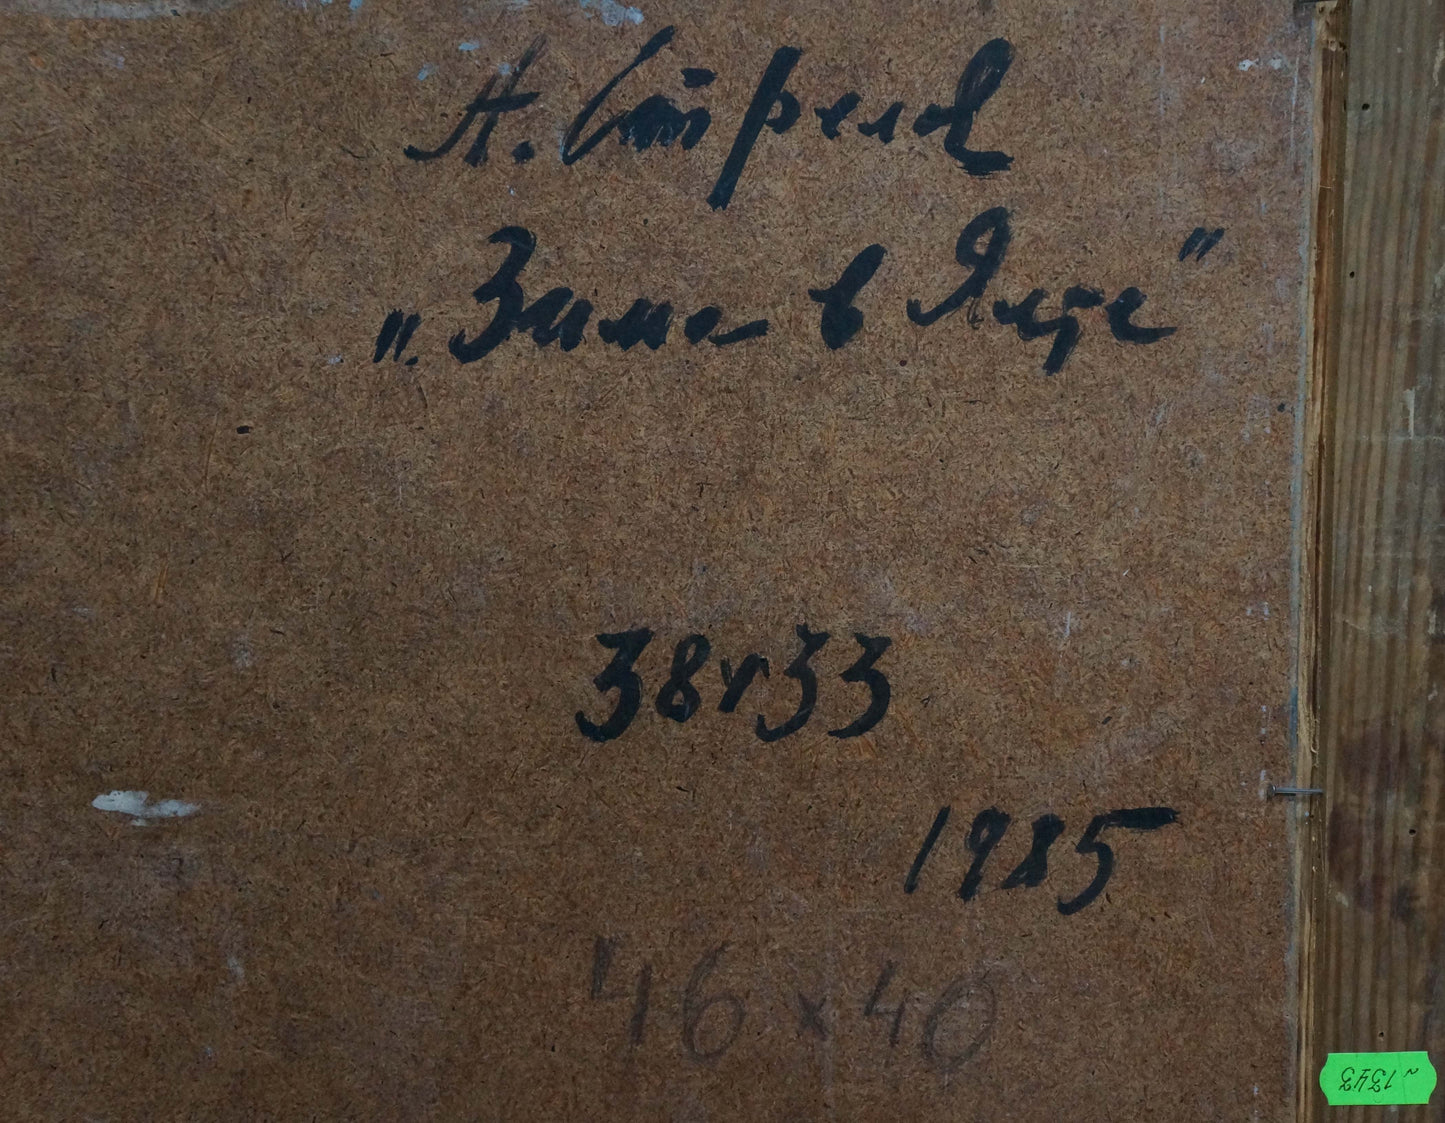 А. Стрелов
"Зима в Ялте"
38х33
1985
46 x 40
~ 1343